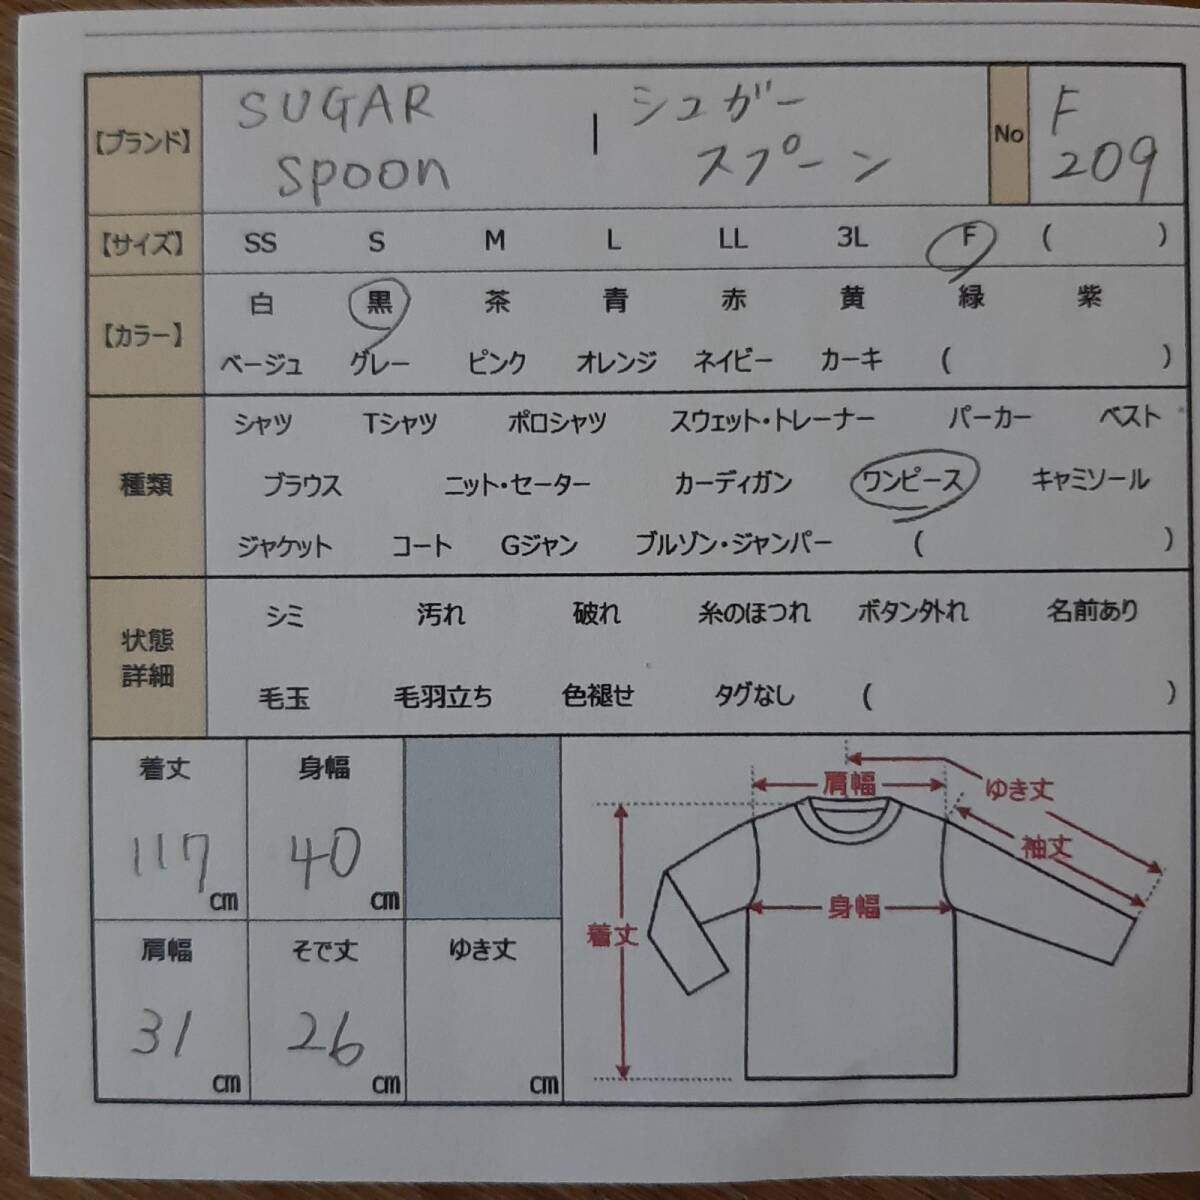 【ブランド】 SUGAR spoon | シュガー スプーン No F 209
【サイズ】 SS S M L LL 3L F ( )
【カラー】 白 黒 茶 青 赤 黄 緑 紫
ベージュ グレー ピンク オレンジ ネイビー カーキ ( )
種類 シャツ Tシャツ ポロシャツ スウェット・トレーナー パーカー ベスト
ブラウス ニット・セーター カーディガン ワンピース キャミソール
ジャケット コート Gジャン ブルゾン・ジャンパー ( )
状態
詳細
シミ 汚れ 破れ 糸のほつれ ボタン外れ 名前あり
毛玉 毛羽立ち 色褪せ タグなし ( )
着丈 身幅
117 cm 40 cm
肩幅 そで丈 ゆき丈
31 cm 26 cm cm
肩幅
ゆき丈
袖丈
身幅
着丈